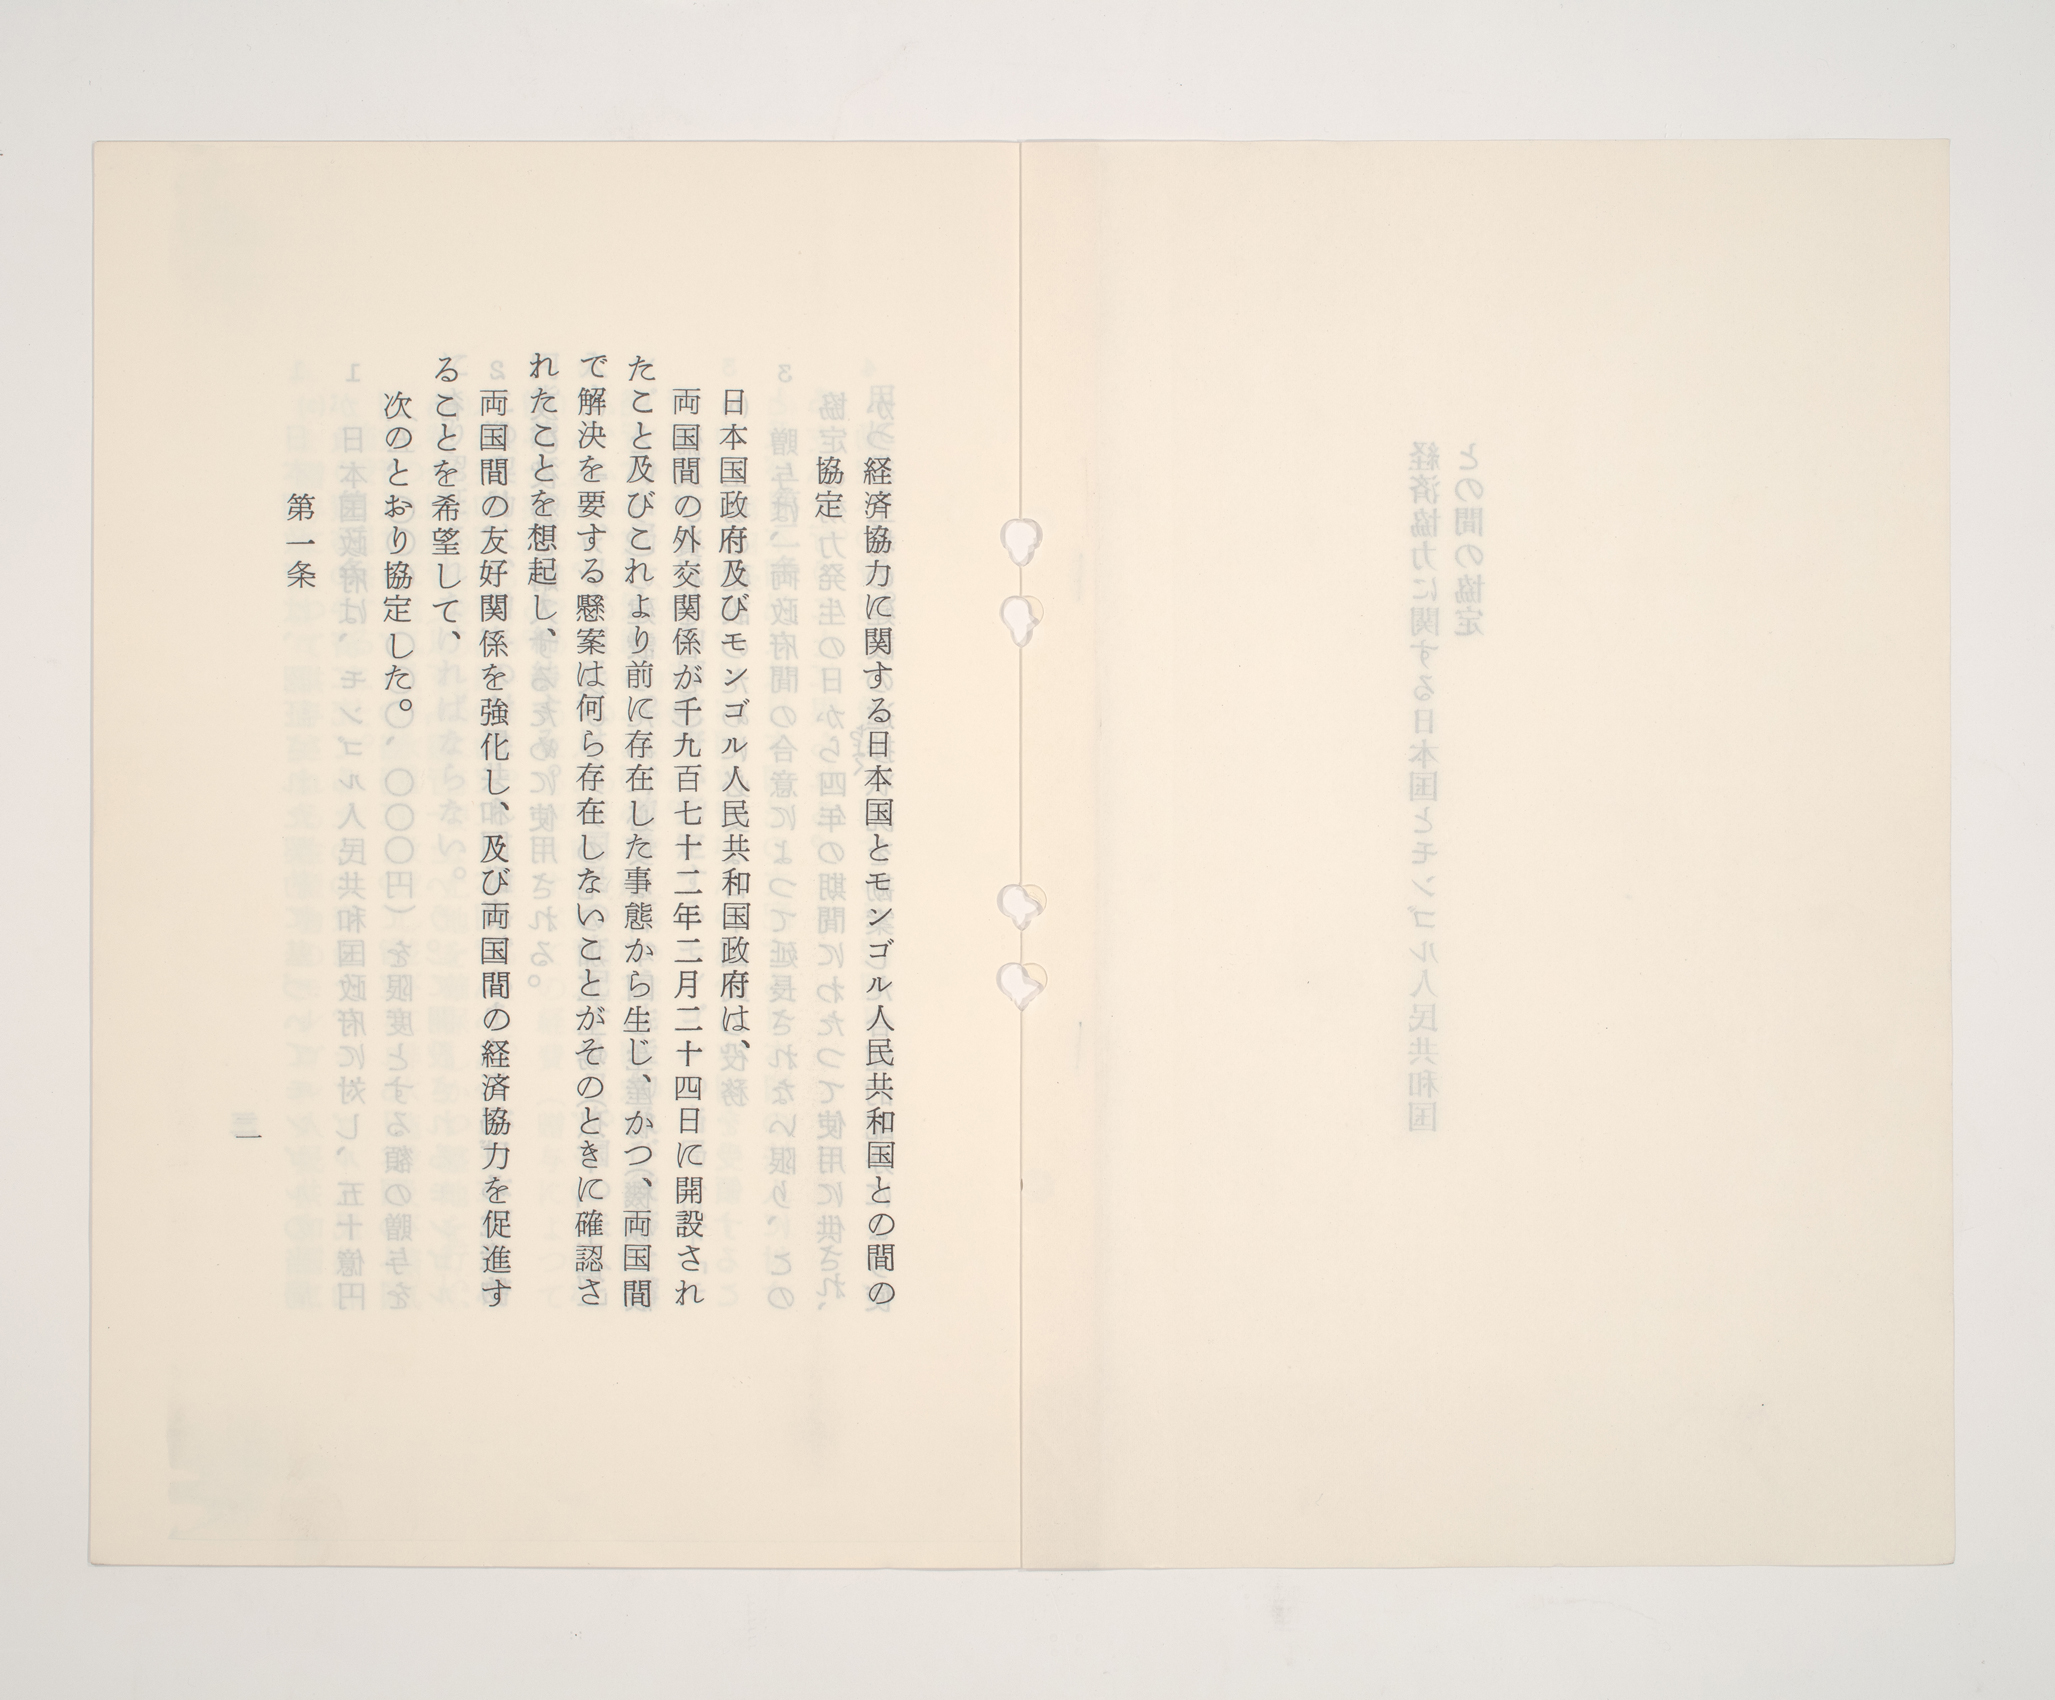 経済協力に関する日本国とモンゴル人民共和国との間の
協定
日本国政府及びモンゴル人民共和国政府は、
両国間の外交関係が千九百七十二年二月二十四日に開設され
たこと及びこれより前に存在した事態から生じ、かつ、両国間
で解決を要する懸案は何ら存在しないことがそのときに確認さ
れたことを想起し、
両国間の友好関係を強化し、及び両国間の経済協力を促進す
ることを希望して、
次のとおり協定した。
第一条
一